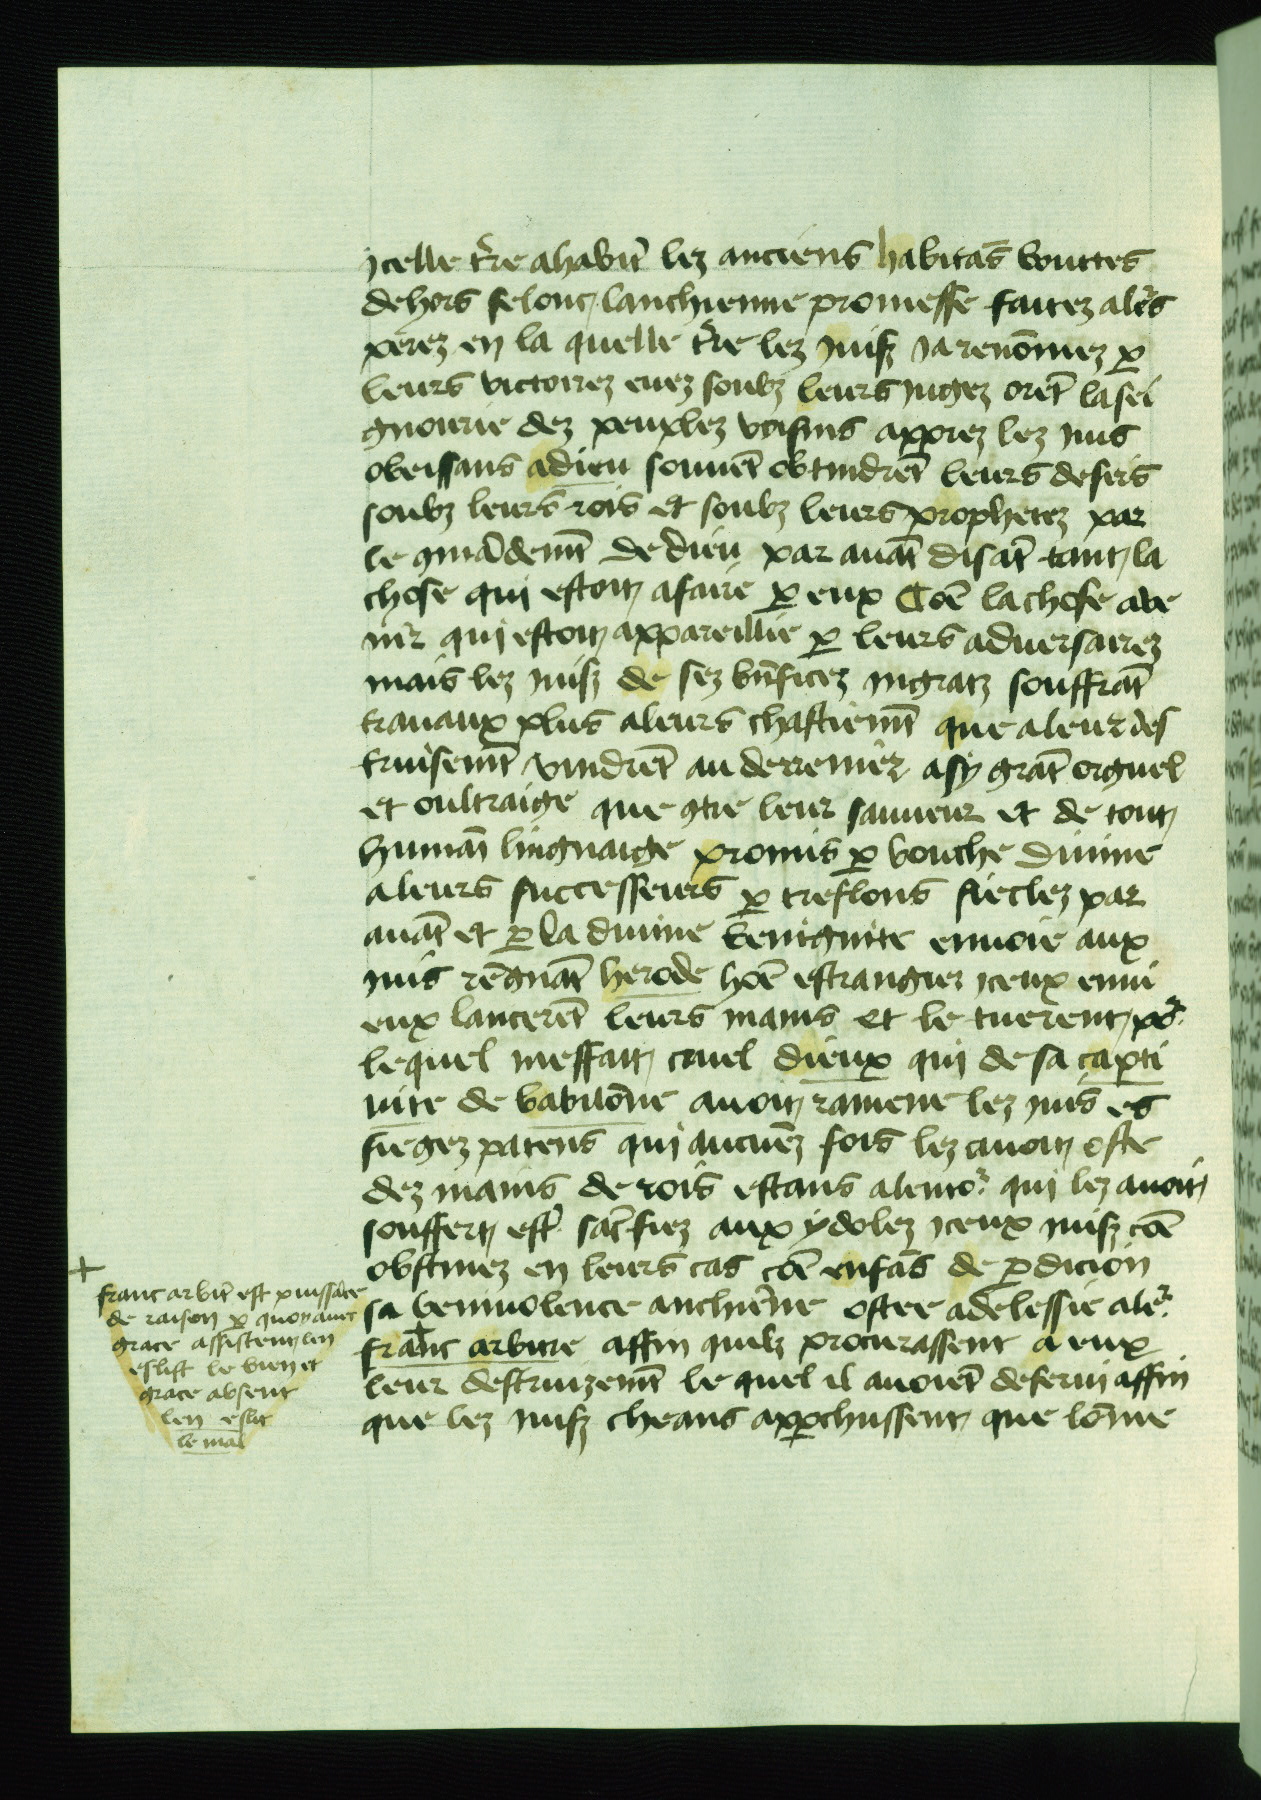 ycelle tr̄e a habit̄ lez anciens habitās bouttes
dehors selonc lanchienne promesse faitez a lēs
perez en la quelle tr̄e lez iuifz ia renōmez ꝑ
leurs victoirez euez soubz leurs iugez orēt la sei
gnourie dez peuplez voisins apprez lez iuis
obeissans a dieu souuēt obtindrēt leurs desirs
soubz leurs rois et soubz leurs prophetez par
le cōmādemt̄ de dieu par auāt disāt tant la
chose qui estoit a faire ꝑ eux Cōe la chose a ve
nir qui estoit appareillie ꝑ leurs aduersairez
mais lez iuifz de sez bn̄ficez ingratz souffrāt
trauaux plus a leurs chastiemt̄ que a leur des
truisemt̄ vindrēt au derrenier a sy grāt orguel
et oultraige que ꝯtre leur sauueur et de tout
humaī linguaige promis ꝑ bouche diuine
a leurs successeurs ꝑ treslons sieclez par
auāt et ꝑ la diuine benignite enuoie aux
iuis rēgnāt herode hōe estrangier iceux enui
eux lancerēt leurs mains et le tuerent po͛
lequel meffait cruel dieux qui de sa capti
uite de babilōne auoit ramene lez iuis es
siegez patens qui aucuēz fois lez auoit oste
dez mains de rois estans alento͛ qui lez auoit
souffert est͛ sac͛fiez aux ydolez iceux iuifz cōe
obstinez en leurs cas cōe enfās de ꝑdicion
sa beniuolence anchiēne ostee a delessie a le͛
franc arbitre affin quilz procurassent a eux
leur destruizemt̄ le quel il auoiēt deserui affin
que lez iuifz cheans apꝓchussent que lōme
+
franc arbit̄ est puissāce
de raison ꝑ quoy auec
grace assistent len
eslist le bien et
grace absent
len eslit
le mal